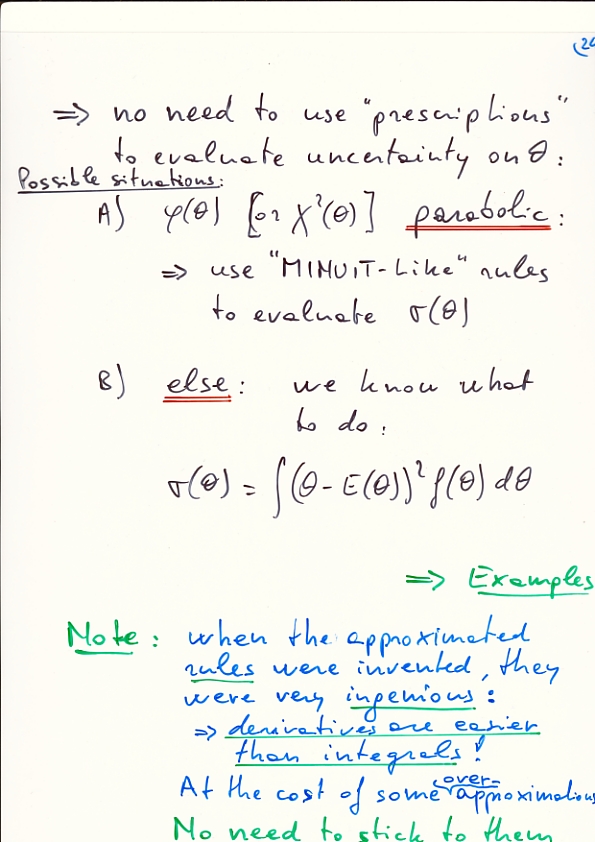 (24
⇒ no need to use "prescriptions"
to evaluate uncertainty on θ:
Possible situations:
A) φ(θ) [or χ²(θ)] parabolic:
⇒ use "MINUIT-Like" rules
to evaluate σ(θ)
B) else: we know what
to do:
σ(θ) = ∫(θ - E(θ))² f(θ) dθ
⇒ Examples
Note: when the approximated
rules were invented, they
were very ingenious:
⇒ derivatives are easier
than integrals!
At the cost of some over-approximations
No need to stick to them